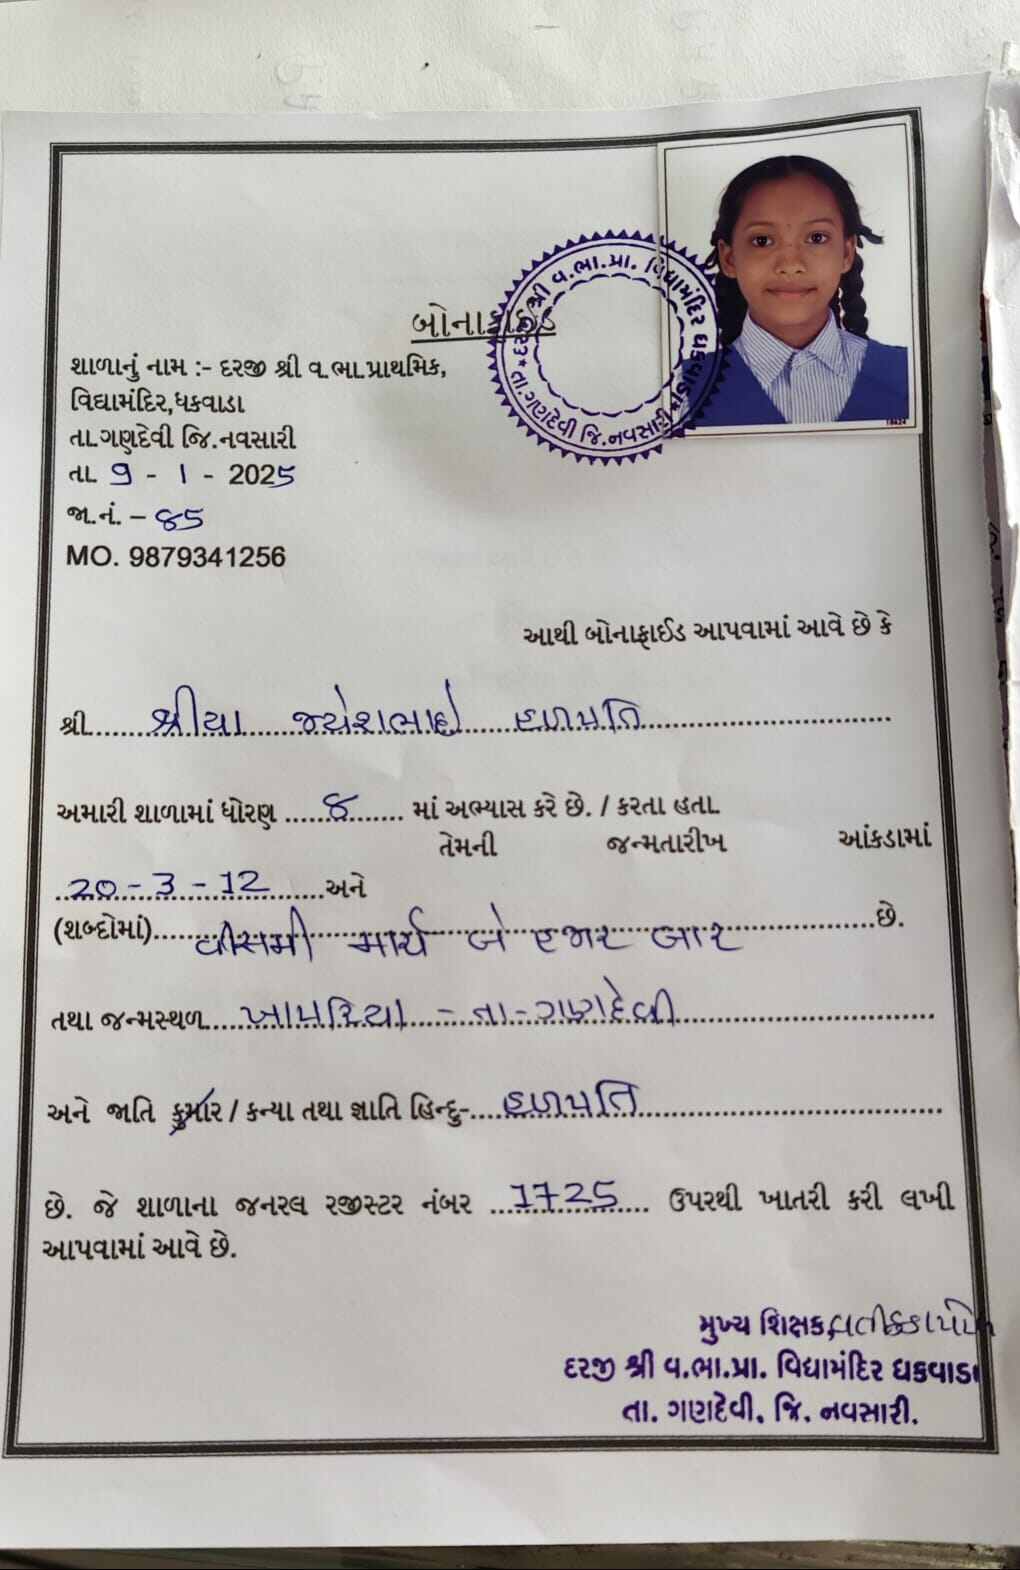 બોનાફાઈડ
દરજી શ્રી વ.ભા.પ્રા. વિદ્યામંદિર ધકવાડા
તા. ગણદેવી જિ. નવસારી
18424
શાળાનું નામ :- દરજી શ્રી વ.ભા.પ્રાથમિક,
વિદ્યામંદિર,ધકવાડા
તા.ગણદેવી જિ.નવસારી
તા. 9 - 1 - 2025
જા.નં. – ૪5
MO. 9879341256
આથી બોનાફાઈડ આપવામાં આવે છે કે
શ્રી......શ્રીયા જયેશભાઈ હળપતિ......
અમારી શાળામાં ધોરણ ......૪...... માં અભ્યાસ કરે છે. / કરતા હતા.
તેમની જન્મતારીખ આંકડામાં
..20-3-12......અને
(શબ્દોમાં)......વીસમી માર્ચ બે હજાર બાર......છે.
તથા જન્મસ્થળ......ખાપરિયા - તા-ગણદેવી......
અને જાતિ કુમાર / કન્યા તથા જ્ઞાતિ હિન્દુ-....હળપતિ......
છે. જે શાળાના જનરલ રજીસ્ટર નંબર ...1725... ઉપરથી ખાતરી કરી લખી
આપવામાં આવે છે.
મુખ્ય શિક્ષક
દરજી શ્રી વ.ભા.પ્રા. વિદ્યામંદિર ધકવાડા
તા. ગણદેવી. જિ. નવસારી.